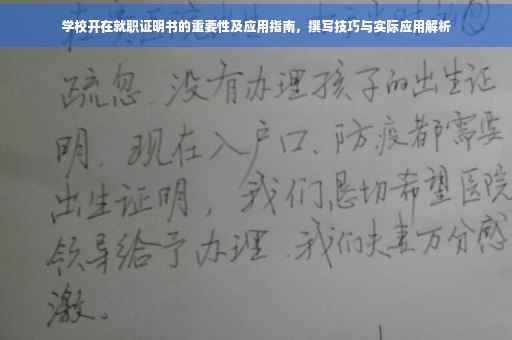 学校开在就职证明书的重要性及应用指南，撰写技巧与实际应用解析
疏忽、没有办理孩子的出生证
明、现在入户口、防疫都需要
出生证明，我们恳切希望医院
领导给予办理、我们夫妻万分感
激。